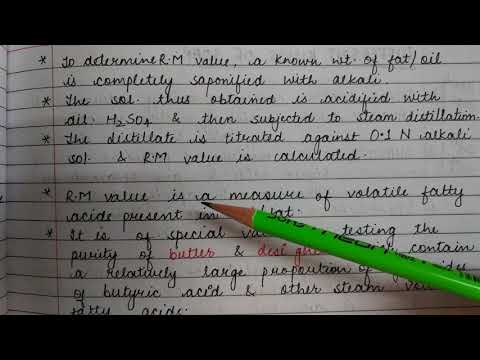 * To determine R.M value, a known wt. of fat/oil
is completely saponified with alkali.
* The sol. thus obtained is acidified with
dil. H₂SO₄ & then subjected to steam distillation.
* The distillate is titrated against 0.1 N alkali
sol. & R.M value is calculated.
* R.M value is a measure of volatile fatty
acids present in fat.
* It is of special testing the
purity of butter & desi contain
a relatively large proportion of
of butyric acid & other steam
fatty acids.